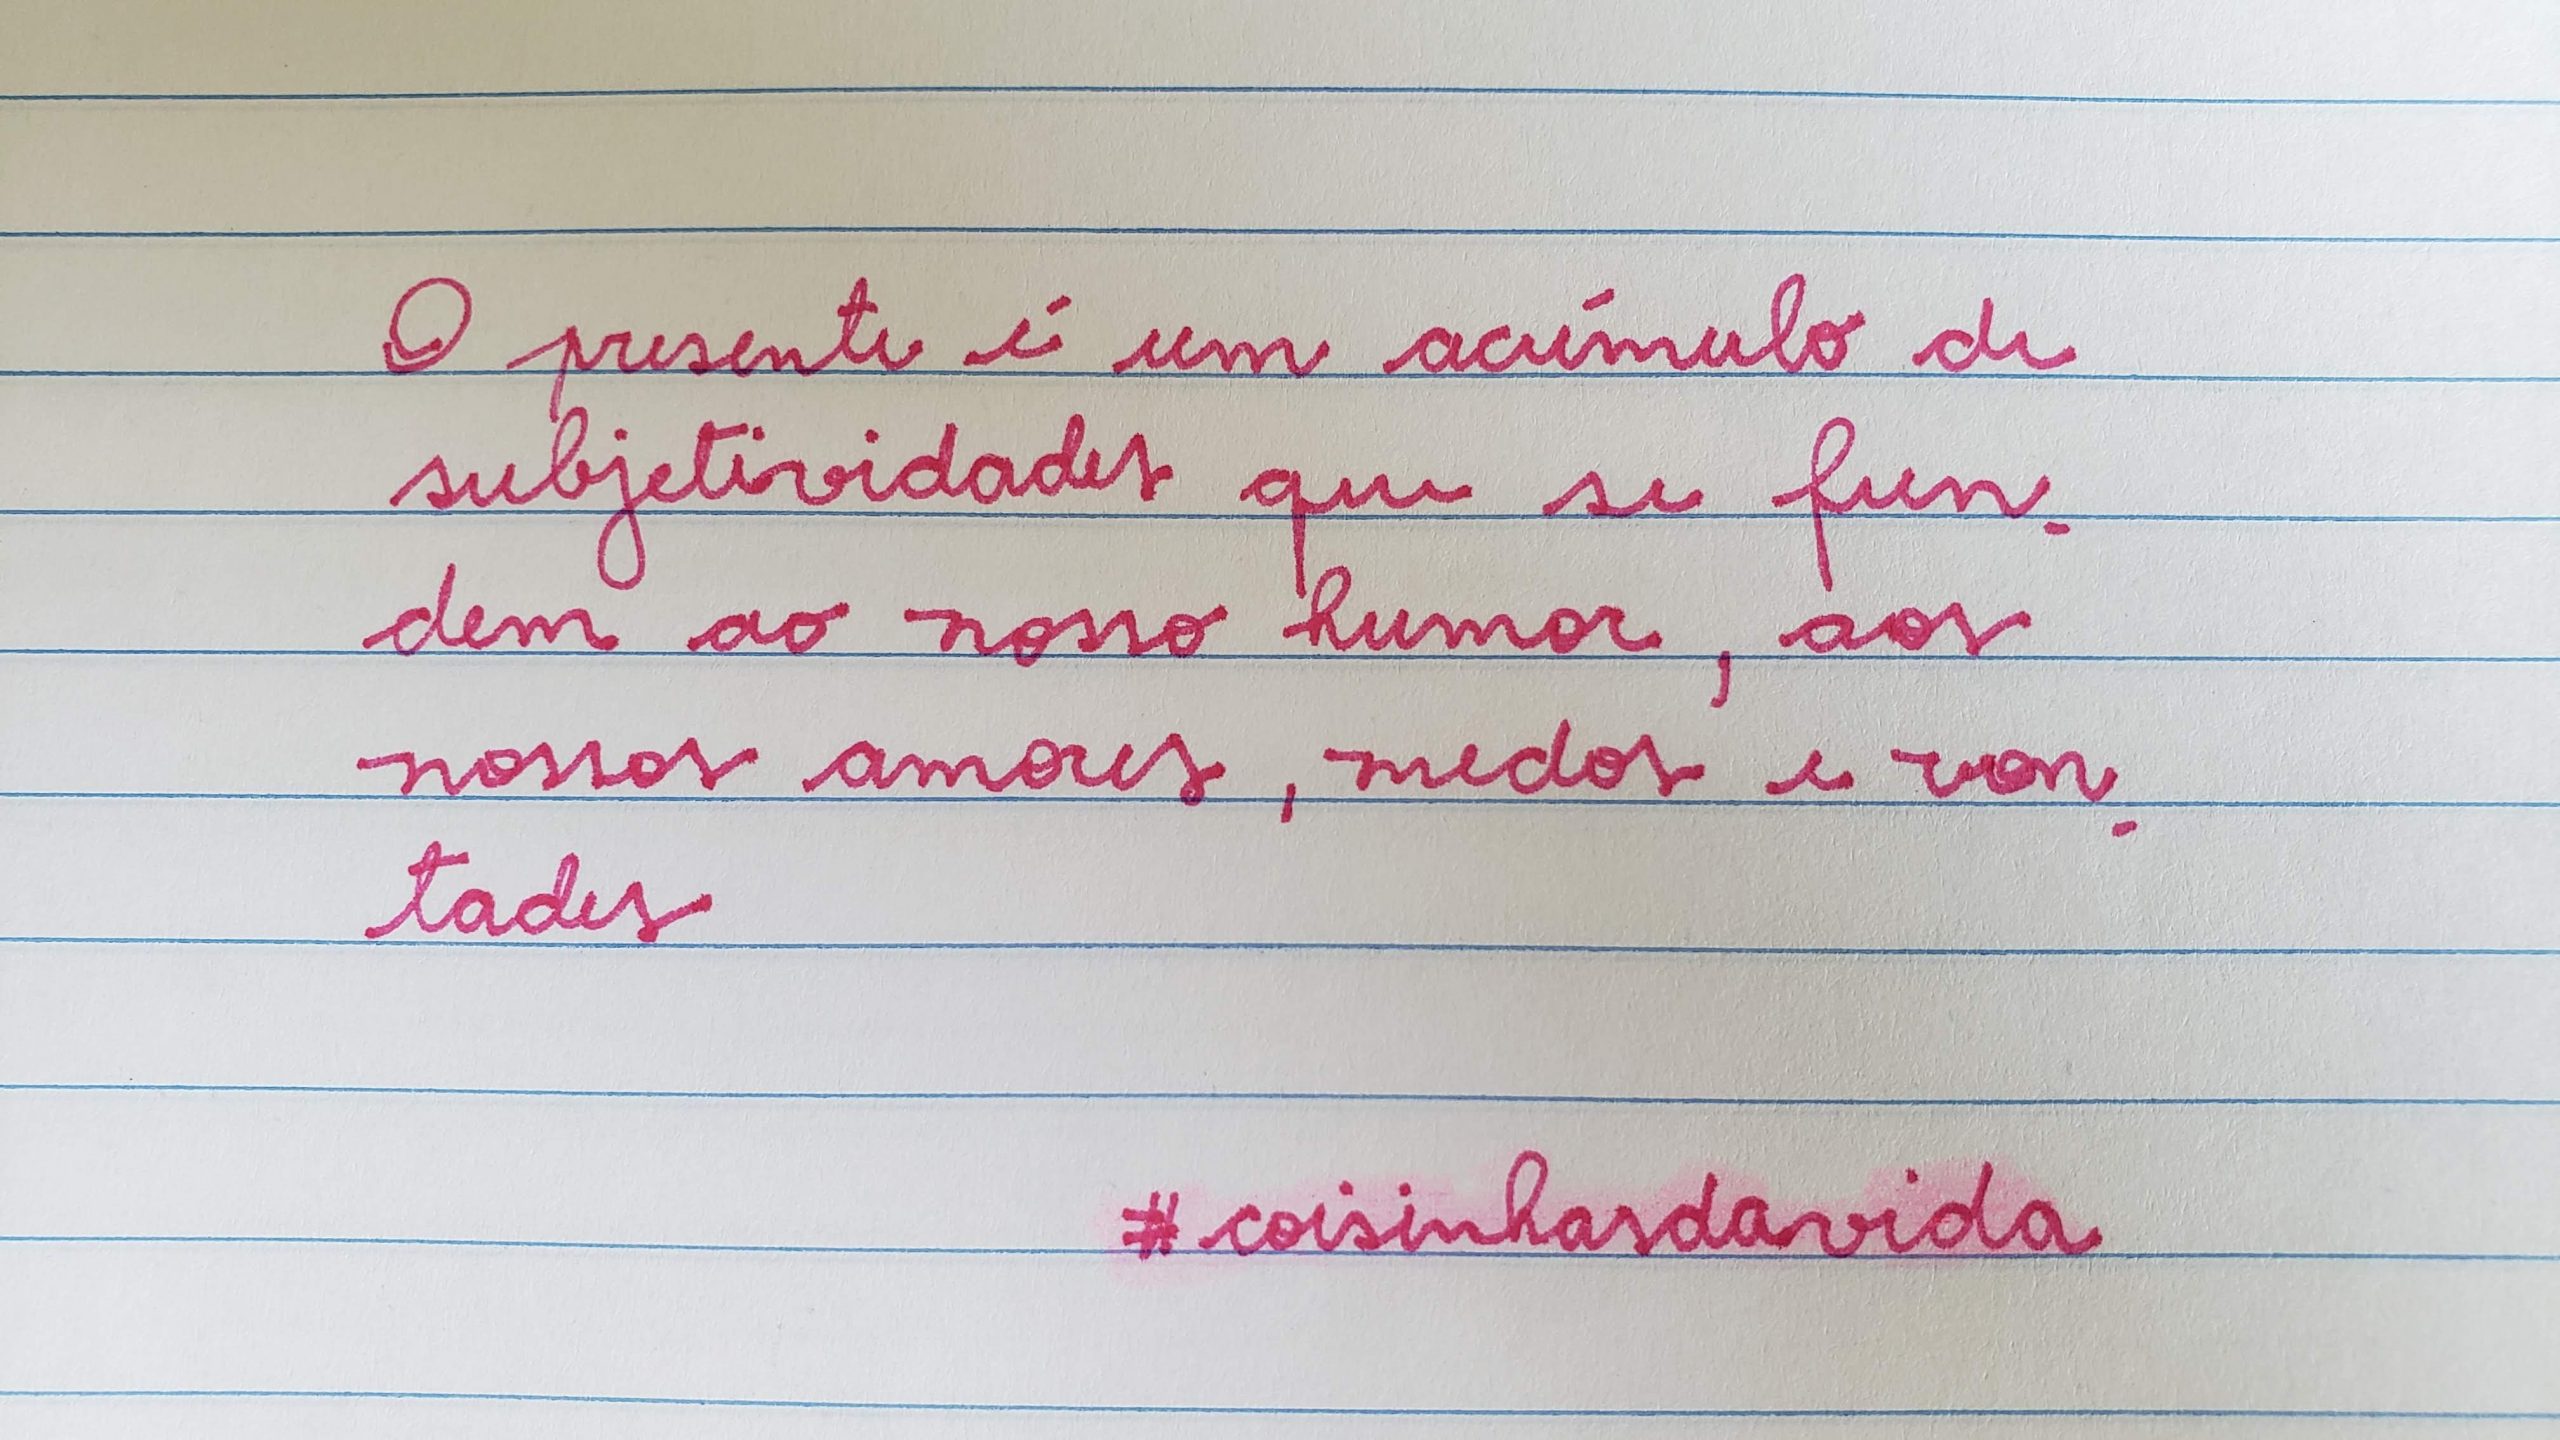 O presente é um acúmulo de
subjetividades que se fun-
dem ao nosso humor, aos
nossos amores, medos e von-
tades
#coisinhasdavida